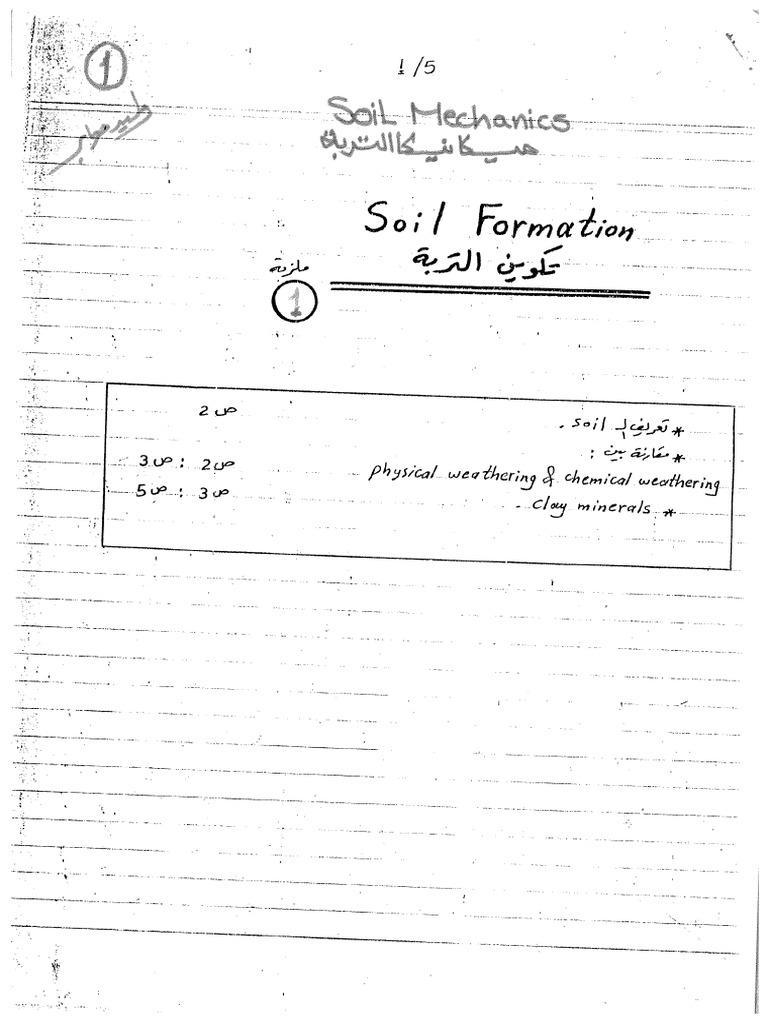 1
1/5
Soil Mechanics
ميكانيكا التربة
Soil Formation
تكوين التربة
ملزمة
1
* تعريف الـ soil . ص 2
* مقارنة بين :
physical weathering & chemical weathering ص 2 : ص 3
* clay minerals . ص 3 : ص 5